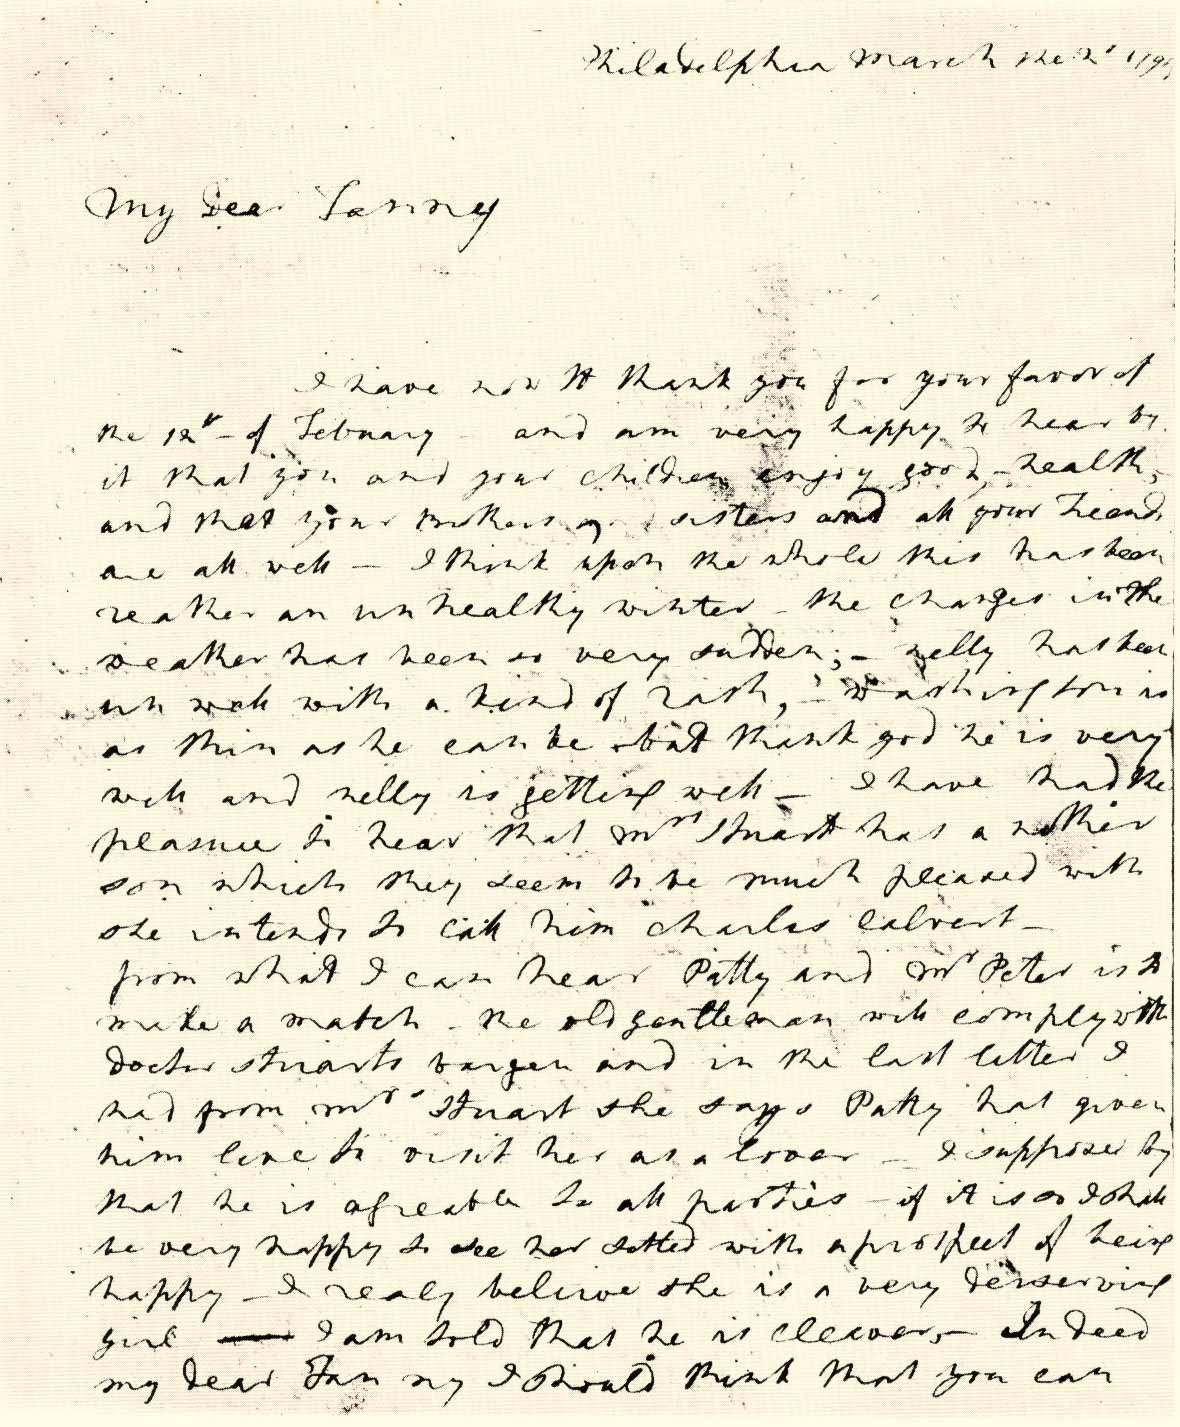 Philadelphia March the 179
My Dear Fanny
I have now to thank you for your favor of
the 12th - of Febuary - and am very happy to hear by
it that you and your children enjoy good - health,
and that your brothers and sisters and all your Friends
are all well - I think upon the whole this has been
reather an unhealthy winter - the changes in the
weather has been so very sudden; - nelly has been
un well with a kind of rash, - washington is
as thin as he can be - but thank god he is very
well and nelly is getting well - I have had the
pleasure to hear that Mrs Stuart has a nother
son which they seem to be much pleased with
she intends to call him charles calvert -
from what I can hear Patty and Mr Peter is to
make a match - the old gentleman will comply with
Doctor stuarts bargen and in the last letter I
had from Mrs Stuart she says Patty had given
him leve to visit her as a lover - I suppose by
that he is agreable to all parties - if it is so I shall
be very happy to see her setted with a prospect of being
happy - I realy beleive she is a very deserving
girl I am told that he is clever, - Indeed
my dear Fanny I should think that you can